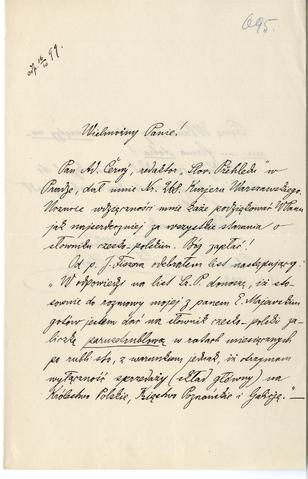 695.
odp. 14/10 99.
Wielmożny Panie!
Pan Ad. Černý, redaktor „Slov. Přehledu" w
Pradze, dał mnie Nr. 286. Kurjera Warszawskiego.
Uczucie wdzięczności mnie każe podziękować WPanu
jak najserdeczniej za wszystkie starania o
słowniku czesko-polskim. Bóg zapłać!
Od p. J. Fiszera odebrałem list następujący:
„W odpowiedzi na list Sz. P. donoszę, iż sto-
sownie do rozmowy mojej z panem E. Majewskim
gotów jestem dać na słownik czesko-polski za-
liczkę paruset rublową w ratach miesięcznych
po rubli sto, z warunkiem jednak, iż otrzymam
wyłączność sprzedaży (skład główny) na
Królestwo Polskie, Księstwo Poznańskie i Galicję."–